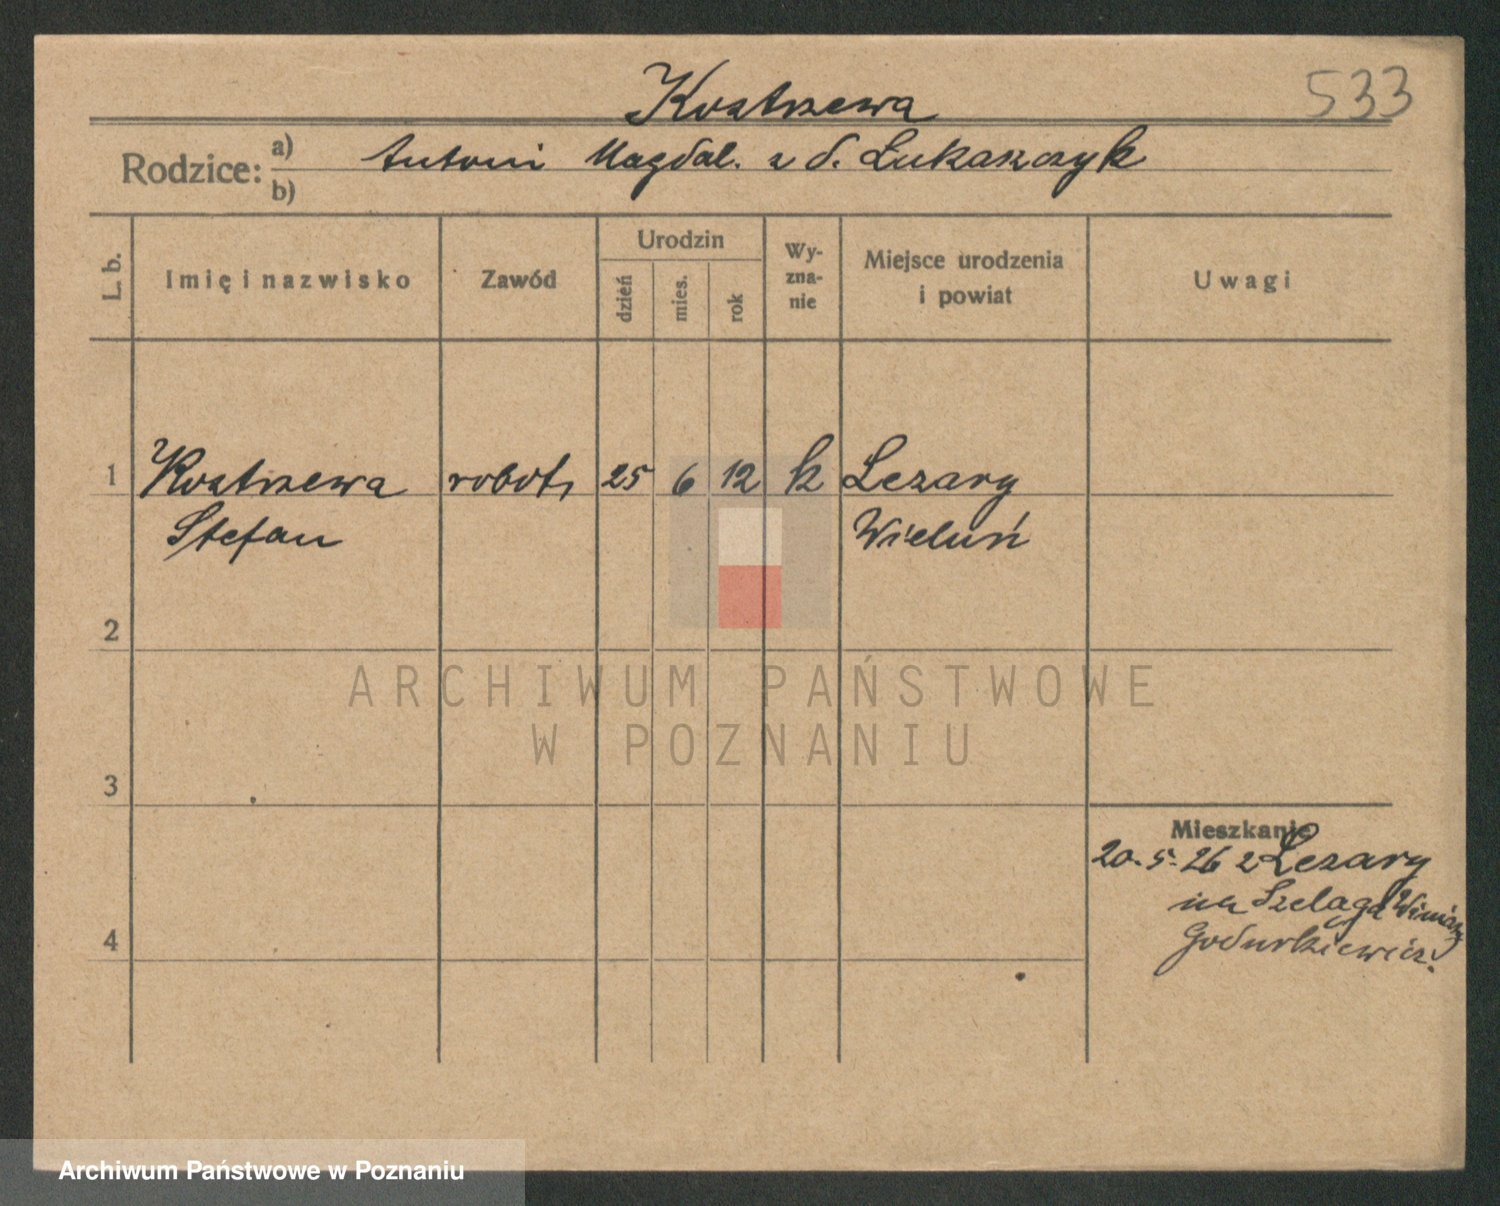 533
Kostrzewa
Rodzice: a) b)
Antoni Magdal. z d. Łukaszczyk
L. b.
Imię i nazwisko
Zawód
Urodzin
dzień
mies.
rok
Wy-
zna-
nie
Miejsce urodzenia
i powiat
Uwagi
1 Kostrzewa robot. 25 6 12 k Lezary
Stefan Wieluń
2
ARCHIWUM PAŃSTWOWE
W POZNANIU
3
Mieszkanie
20.5.26 z Lezary
na Szeląga
4
Archiwum Państwowe w Poznaniu